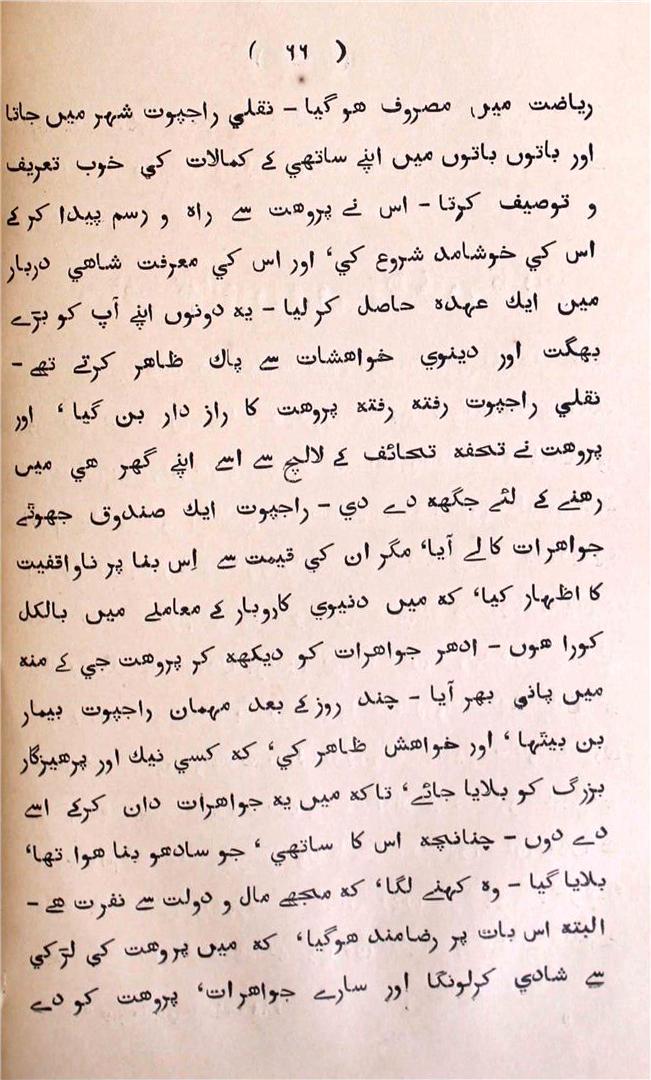 ( ۶۶ )
ریاضت میں مصروف هوگیا - نقلي راجپوت شہر میں جاتا
اور باتوں باتوں میں اپنے ساتھي کے کمالات کي خوب تعریف
و توصیف کرتا - اس نے پروهت سے راه و رسم پیدا کرکے
اس کي خوشامد شروع کي، اور اس کي معرفت شاهي دربار
میں ایك عہده حاصل کرلیا - یه دونوں اپنے آپ کو بڑے
بھگت اور دینوي خواهشات سے پاك ظاهر کرتے تھے -
نقلي راجپوت رفته رفته پروهت کا راز دار بن گیا، اور
پروهت نے تحفه تحائف کے لالچ سے اسے اپنے گھر هي میں
رهنے کے لئے جگهه دے دي - راجپوت ایك صندوق جھوٹے
جواهرات کا لے آیا، مگر ان کي قیمت سے اِس بنا پر ناواقفیت
کا اظہار کیا، که میں دنیوي کاروبار کے معاملے میں بالکل
کورا هوں - ادھر جواهرات کو دیکهه کر پروهت جي کے منه
میں پاني بھر آیا - چند روز کے بعد مہمان راجپوت بیمار
بن بیٹھا، اور خواهش ظاهر کي، که کسي نیك اور پرهیزگار
بزرگ کو بلایا جائے، تاکه میں یه جواهرات دان کرکے اسے
دے دوں - چنانچه اس کا ساتھي، جو سادھو بنا هوا تھا،
بلایا گیا - وه کہنے لگا، که مجھے مال و دولت سے نفرت هے -
البته اس بات پر رضامند هوگیا، که میں پروهت کي لڑکي
سے شادي کرلونگا اور سارے جواهرات، پروهت کو دے